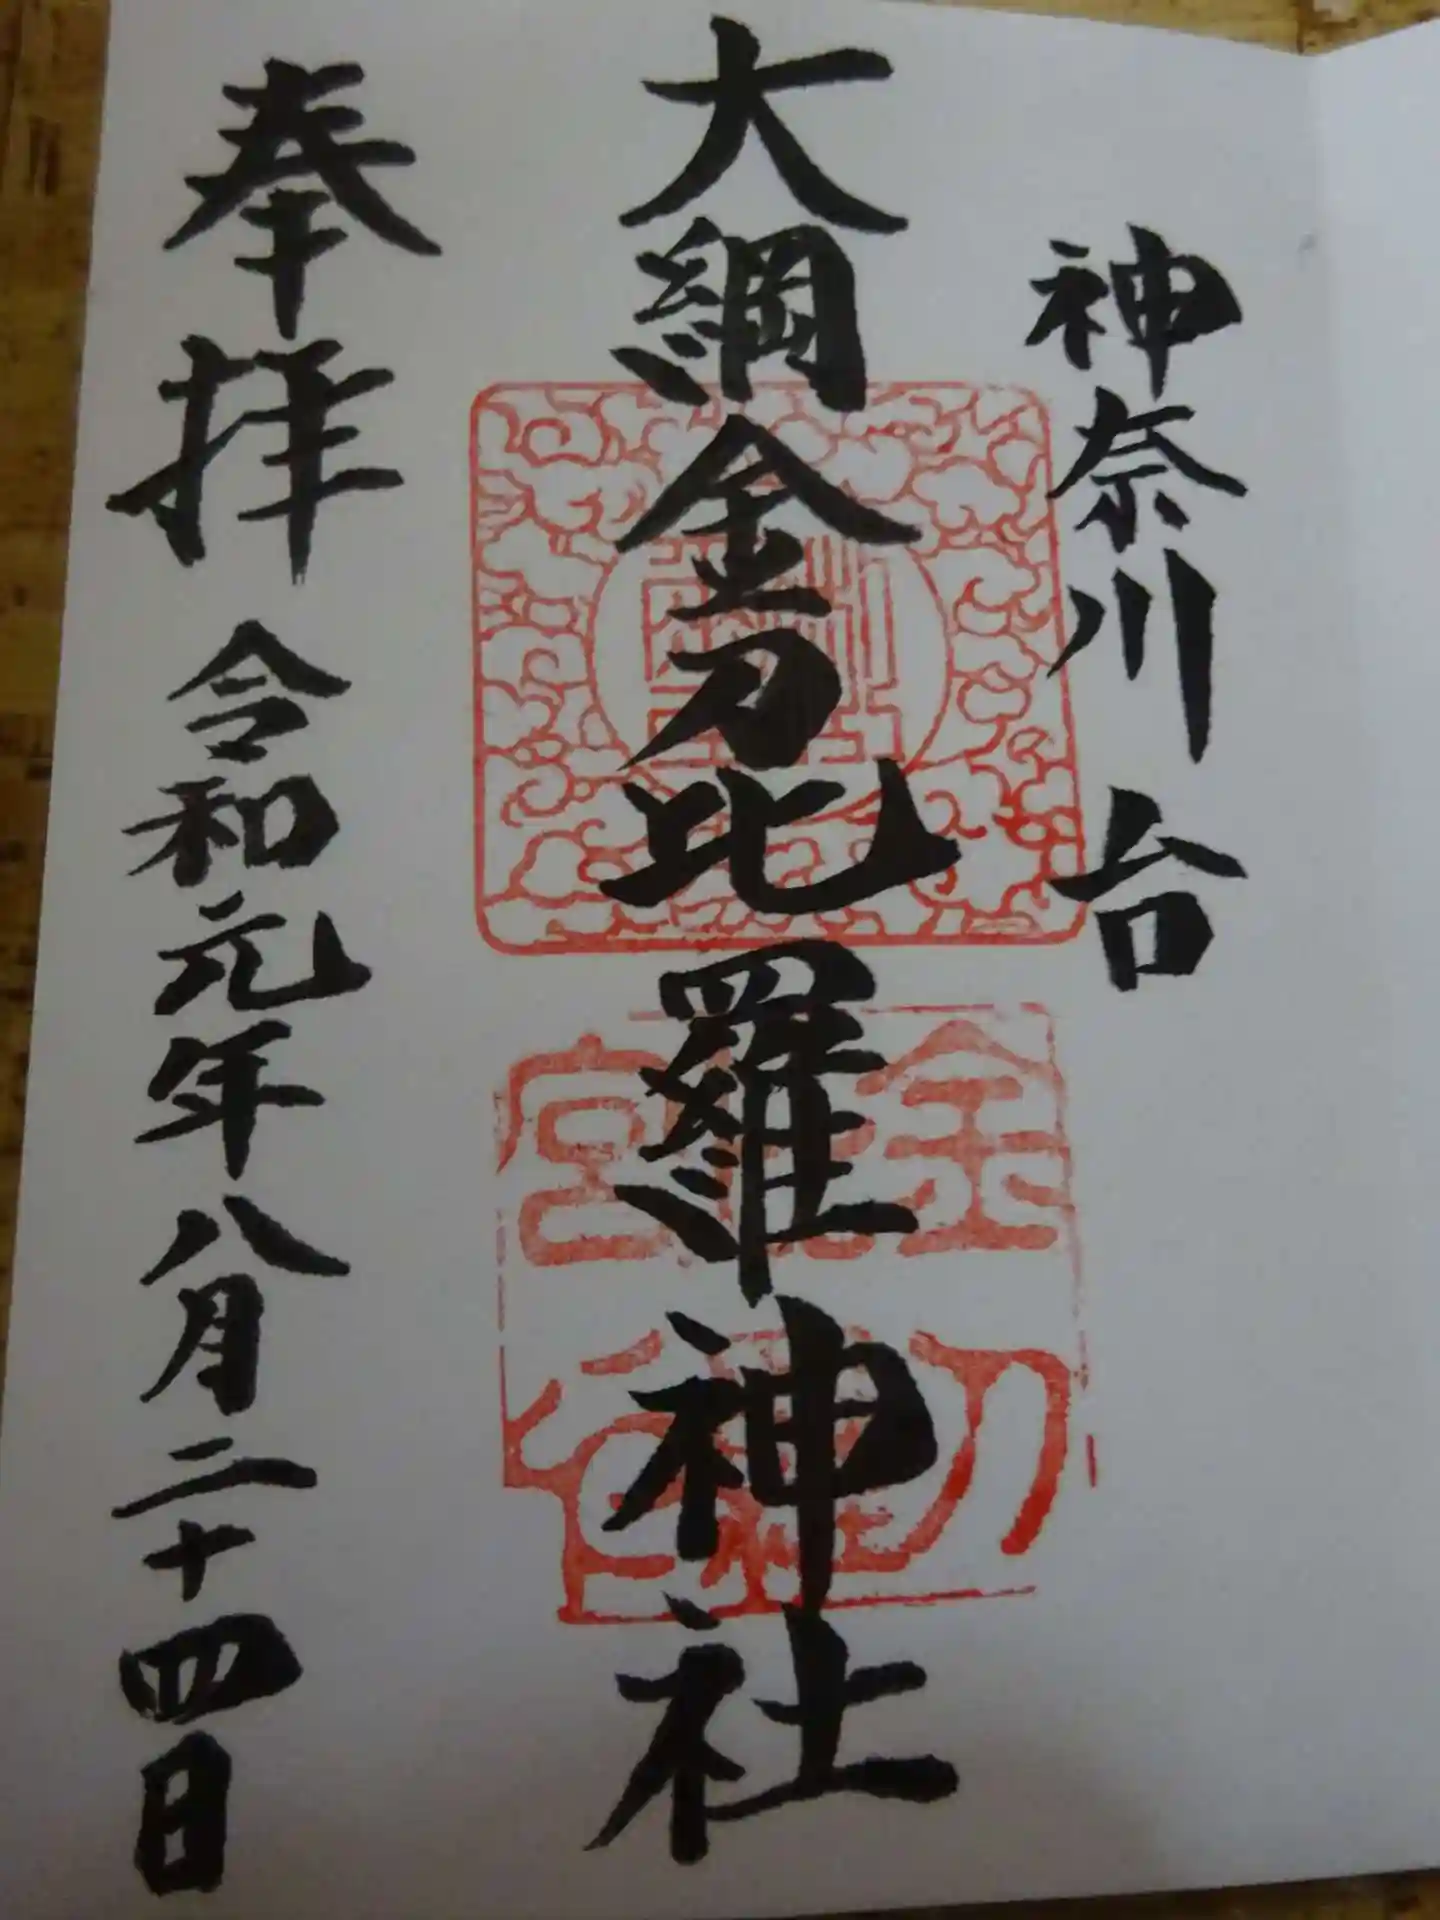 神奈川台
大綱金刀比羅神社
奉拝 令和元年八月二十四日